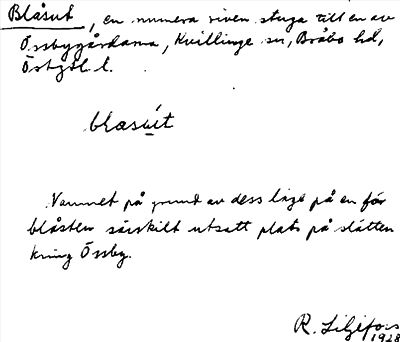 Blåsut, en numera riven stuga till en av
Össbygårdarna, Kvillinge sn, Bråbo hd,
Östgöt. l.
blasút
Namnet på grund av dess läge på en för
blåsten särskilt utsatt plats på slätten
kring Össby.
R. Liljefors
1928